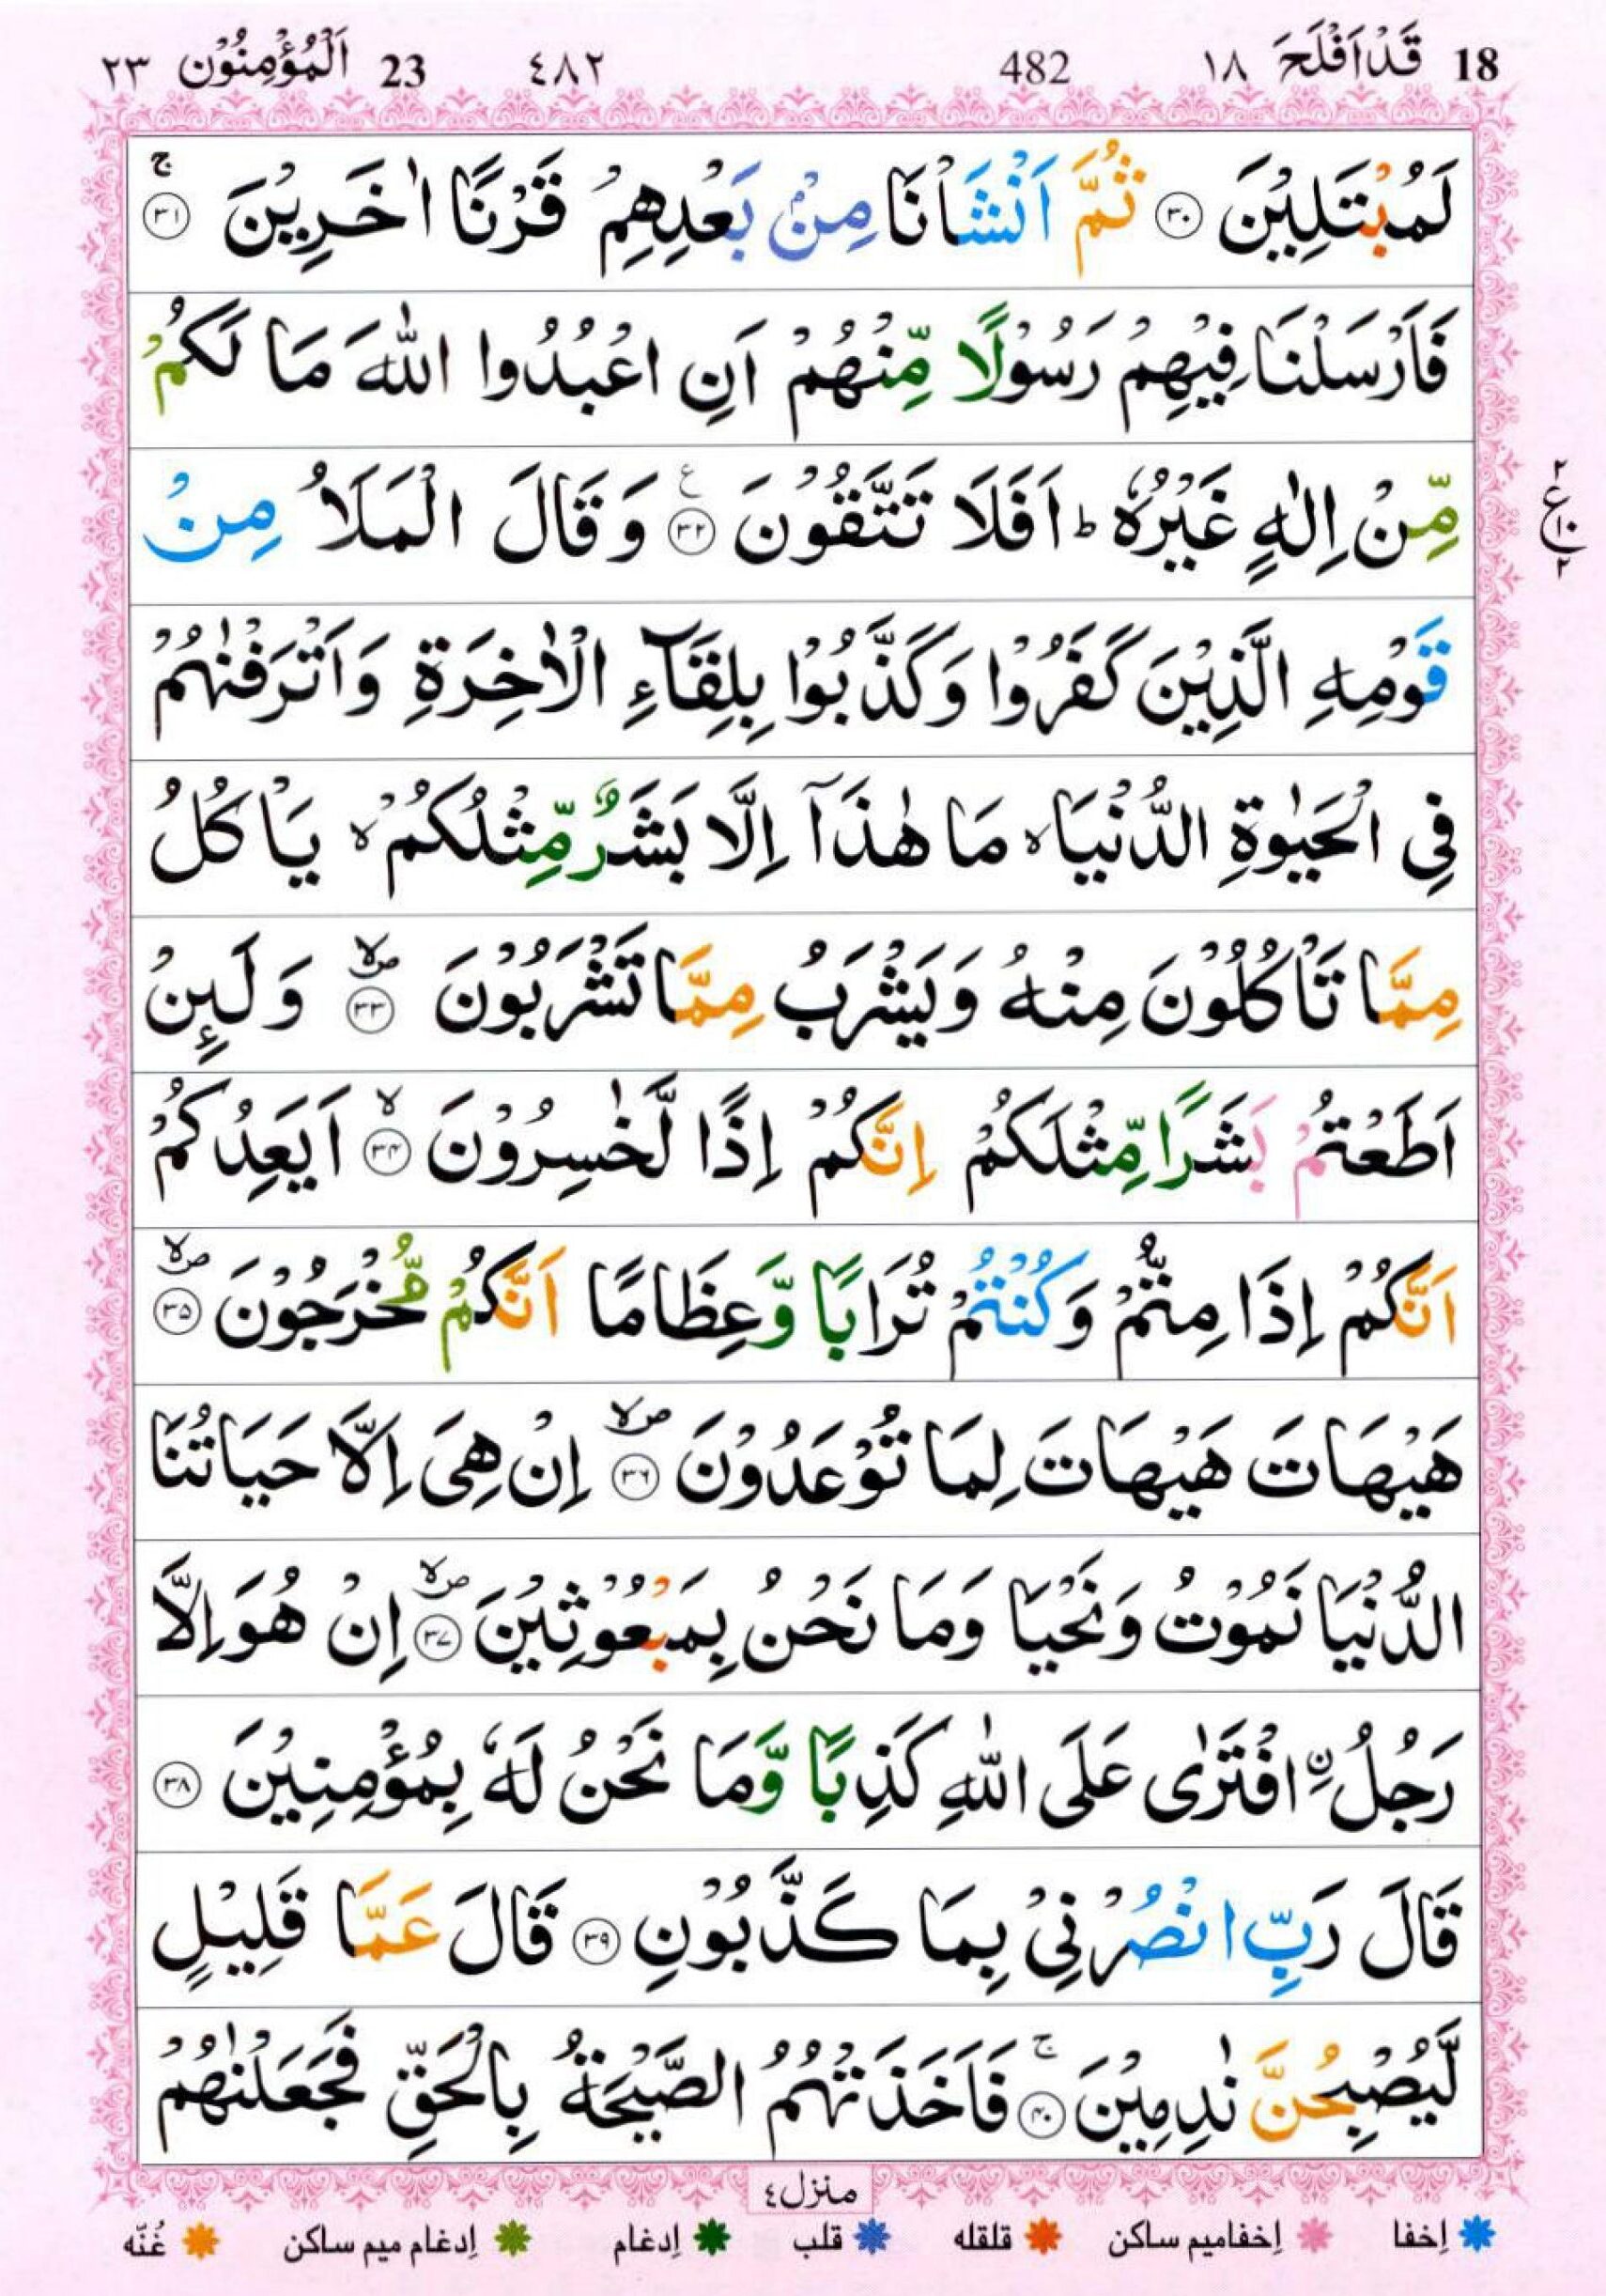 18 قَدْ اَفْلَحَ ١٨ 482 ٤٨٢ 23 اَلْمُؤْمِنُوْن ٢٣
لَمُبْتَلِيْنَ ۝۳۰ ثُمَّ اَنْشَاْنَا مِنْۢ بَعْدِهِمْ قَرْنًا اٰخَرِيْنَ ۝۳۱ۚ
فَاَرْسَلْنَا فِيْهِمْ رَسُوْلًا مِّنْهُمْ اَنِ اعْبُدُوا اللّٰهَ مَا لَكُمْ
مِّنْ اِلٰهٍ غَيْرُهٗ ؕ اَفَلَا تَتَّقُوْنَ ۝۳۲ ع وَقَالَ الْمَلَاُ مِنْ
٢ ع ١٠ ٢
قَوْمِهِ الَّذِيْنَ كَفَرُوْا وَكَذَّبُوْا بِلِقَآءِ الْاٰخِرَةِ وَاَتْرَفْنٰهُمْ
فِي الْحَيٰوةِ الدُّنْيَا ۙ مَا هٰذَاۤ اِلَّا بَشَرٌ مِّثْلُكُمْ ۙ يَاْكُلُ
مِمَّا تَاْكُلُوْنَ مِنْهُ وَيَشْرَبُ مِمَّا تَشْرَبُوْنَ ۝۳۳ صلا وَلَىِٕنْ
اَطَعْتُمْ بَشَرًا مِّثْلَكُمْ اِنَّكُمْ اِذًا لَّخٰسِرُوْنَ ۝۳۴ۙ اَيَعِدُكُمْ
اَنَّكُمْ اِذَا مِتُّمْ وَكُنْتُمْ تُرَابًا وَّعِظَامًا اَنَّكُمْ مُّخْرَجُوْنَ ۝۳۵ صلا
هَيْهَاتَ هَيْهَاتَ لِمَا تُوْعَدُوْنَ ۝۳۶ صلا اِنْ هِىَ اِلَّا حَيَاتُنَا
الدُّنْيَا نَمُوْتُ وَنَحْيَا وَمَا نَحْنُ بِمَبْعُوْثِيْنَ ۝۳۷ صلا اِنْ هُوَ اِلَّا
رَجُلُ ۨافْتَرٰى عَلَى اللّٰهِ كَذِبًا وَّمَا نَحْنُ لَهٗ بِمُؤْمِنِيْنَ ۝۳۸
قَالَ رَبِّ انْصُرْنِيْ بِمَا كَذَّبُوْنِ ۝۳۹ قَالَ عَمَّا قَلِيْلٍ
لَّيُصْبِحُنَّ نٰدِمِيْنَ ۝۴۰ۚ فَاَخَذَتْهُمُ الصَّيْحَةُ بِالْحَقِّ فَجَعَلْنٰهُمْ
منزل ٤
اِخفا اِخفامیم ساکن قلقله قلب اِدغام اِدغام میم ساکن غُنّه